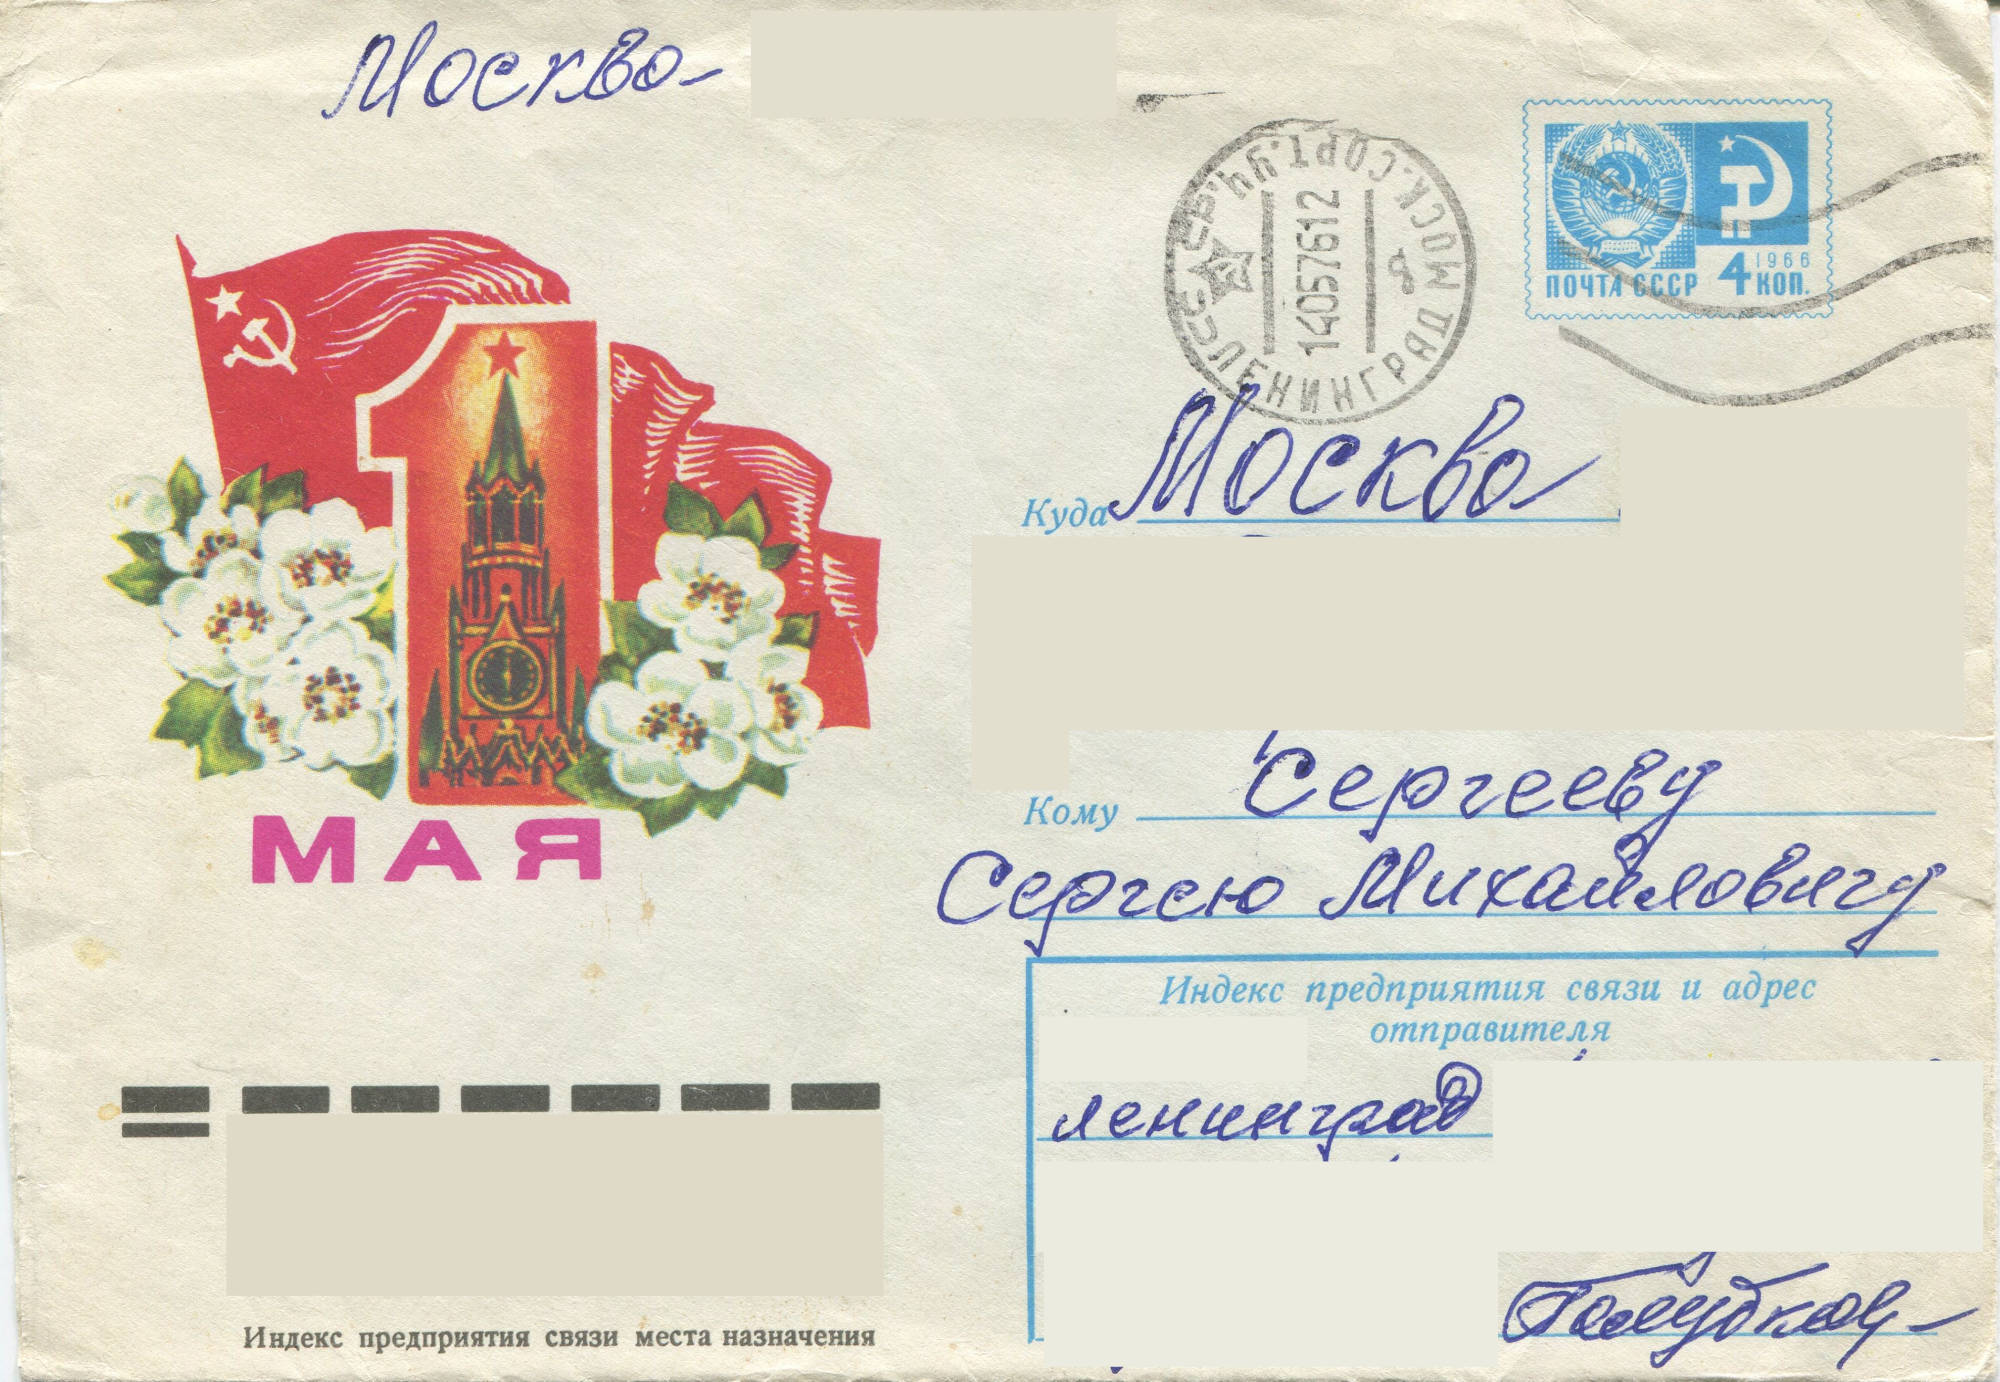 Москва
СССР ЛЕНИНГРАД МОСК.СОРТ.УЧ.
140576 12
1966
ПОЧТА СССР 4 КОП.
Куда Москва
1
МАЯ
Кому Сергееву
Сергею Михайловичу
Индекс предприятия связи и адрес
отправителя
ленинград
Индекс предприятия связи места назначения